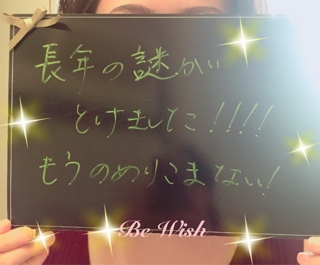 長年の謎が
とけました!!!!
もうのめりこまない!
Be Wish